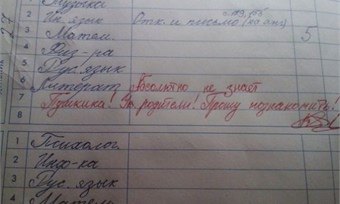 1 Музыка
2 Ин. язык Отк. и письмо (на анг) 5
3 Матем.
4 Физ-ра
5 Рус. язык
6 Литерат Абсолютно не знает
7 Пушкина! Ув. родители! Прошу познакомить!
8
1 Психолог.
2 Инф-ка
3 Рус. язык
4 Матем